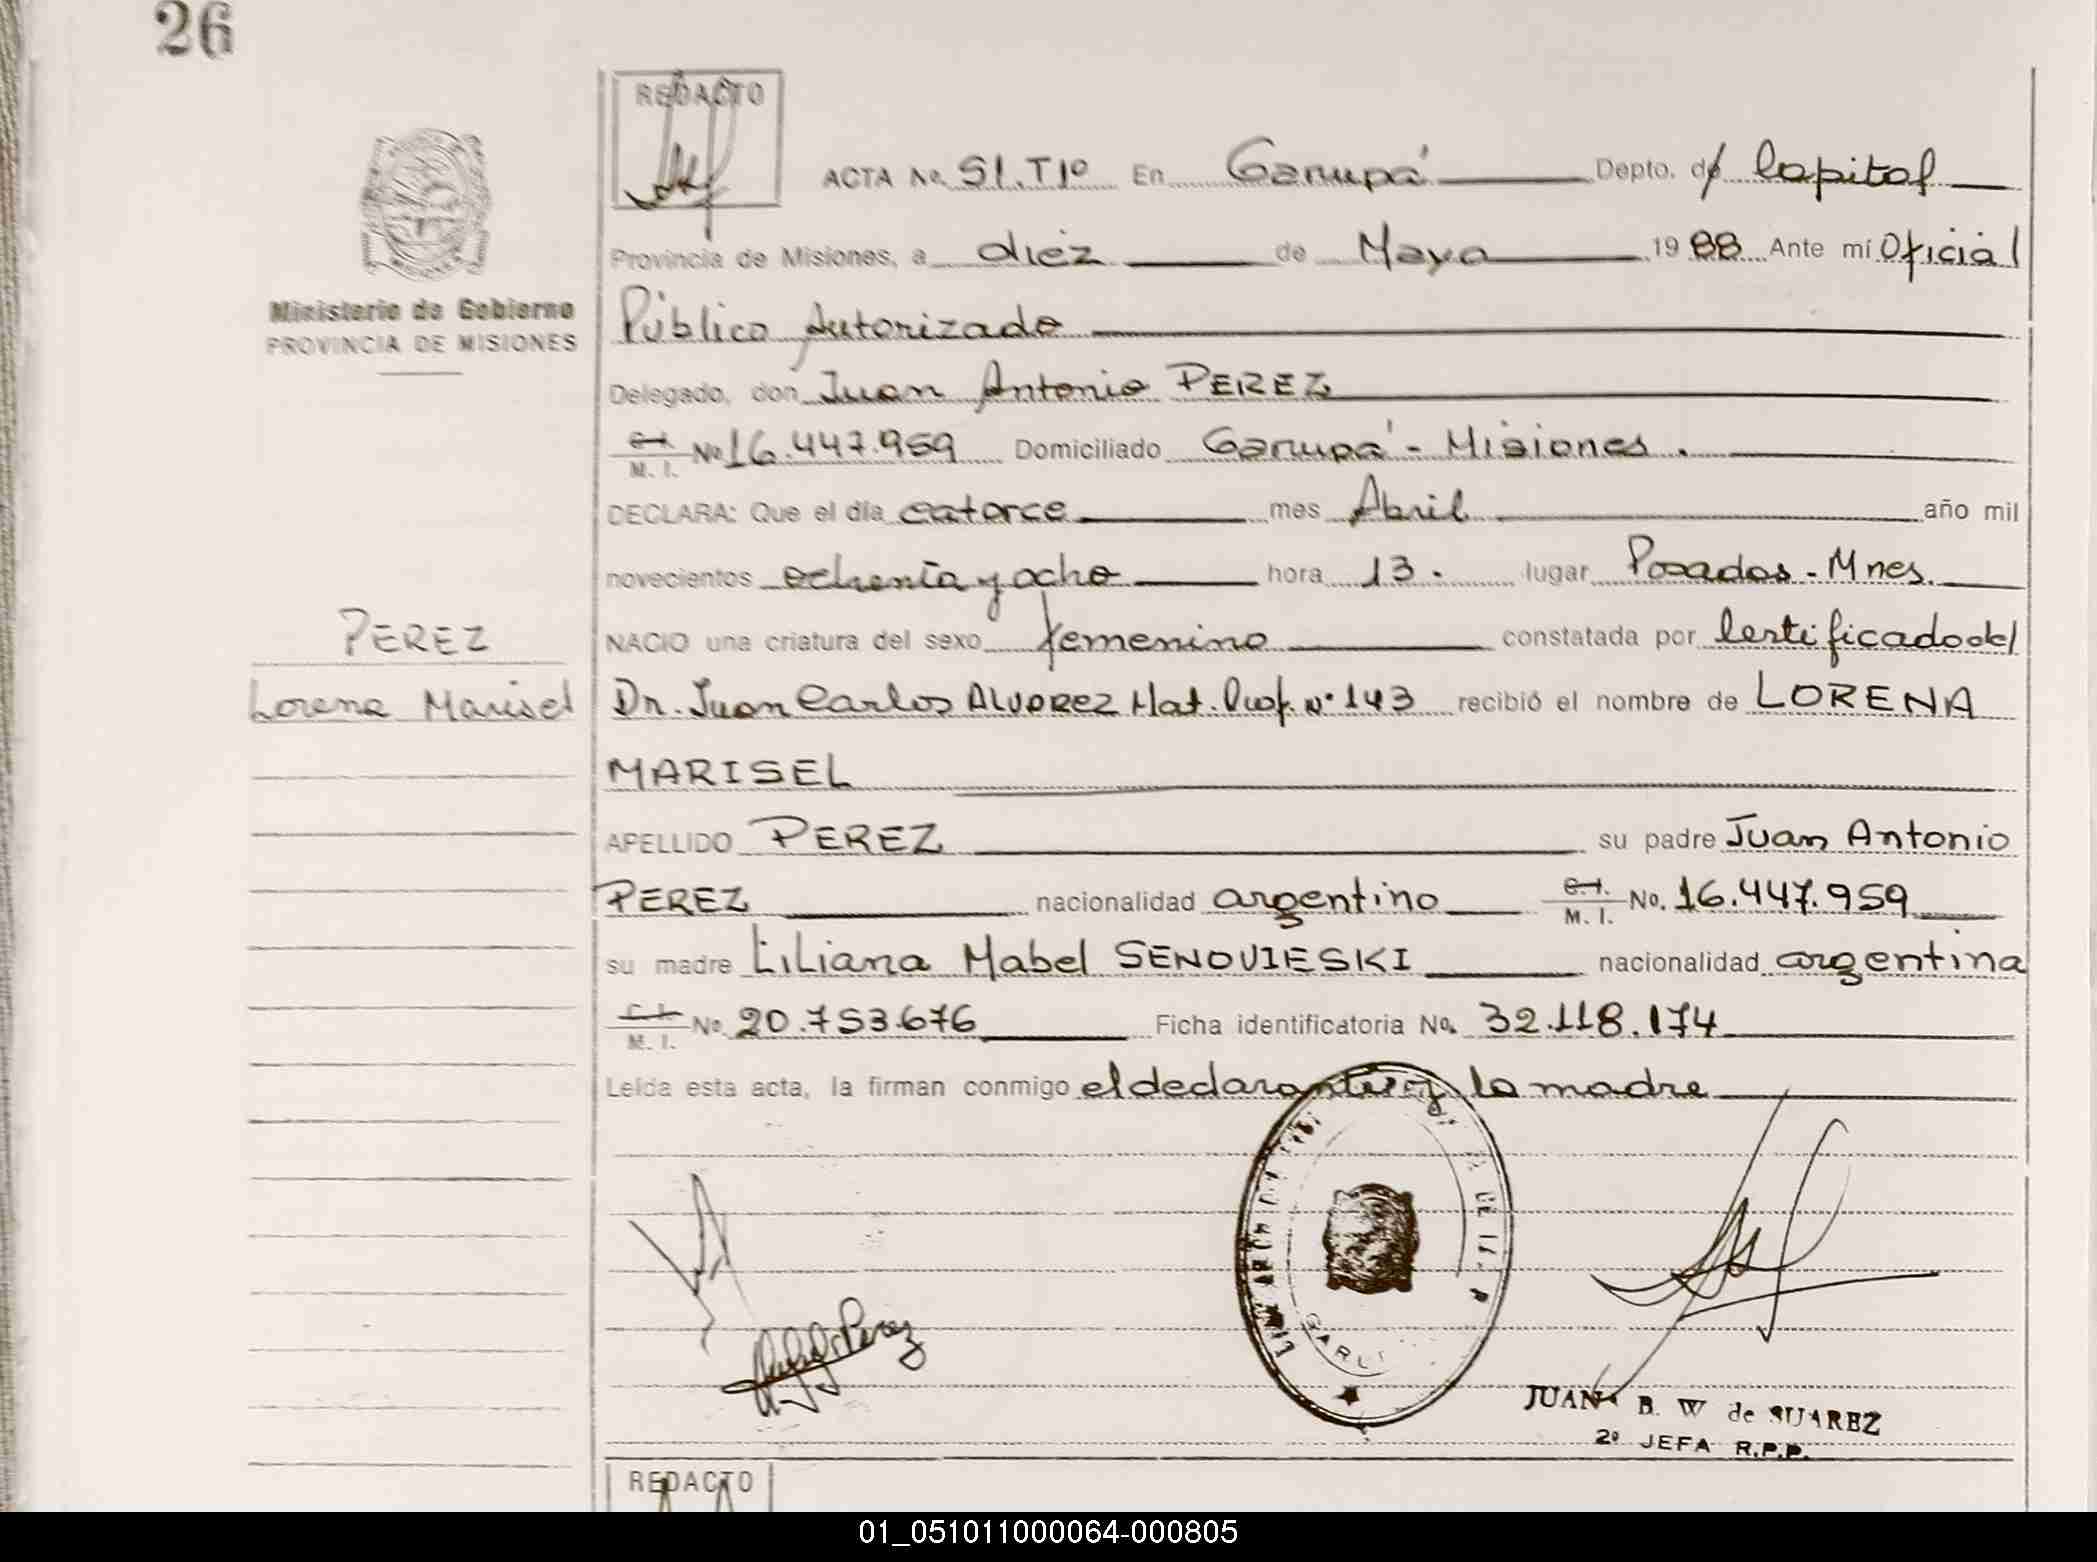 26
REDACTO
ACTA No. 51.T1º En Garupá Depto. de Capital
Provincia de Misiones, a diez de Mayo 1988 Ante mí Oficial
Público Autorizado
Ministerio de Gobierno
PROVINCIA DE MISIONES
Delegado, don Juan Antonio PEREZ
C.I. M. I. No 16.447.959 Domiciliado Garupá - Misiones.
DECLARA: Que el día catorce mes Abril año mil
novecientos ochenta y ocho hora 13. lugar Posadas - Mnes.
NACIO una criatura del sexo femenino constatada por Certificado del
PEREZ
Lorena Marisel
Dr. Juan Carlos ALVAREZ Mat. Prof. Nº 143 recibió el nombre de LORENA
MARISEL
APELLIDO PEREZ su padre Juan Antonio
PEREZ nacionalidad argentino C.I. M. I. No. 16.447.959
su madre Liliana Mabel SENOVIESKI nacionalidad argentina
C.I. M. I. No. 20.753.676 Ficha identificatoria No. 32.118.174
Leída esta acta, la firman conmigo el declarante y la madre
Perez
JUANA B. W de SUAREZ
2º JEFA R.P.P.
REDACTO
01_051011000064-000805